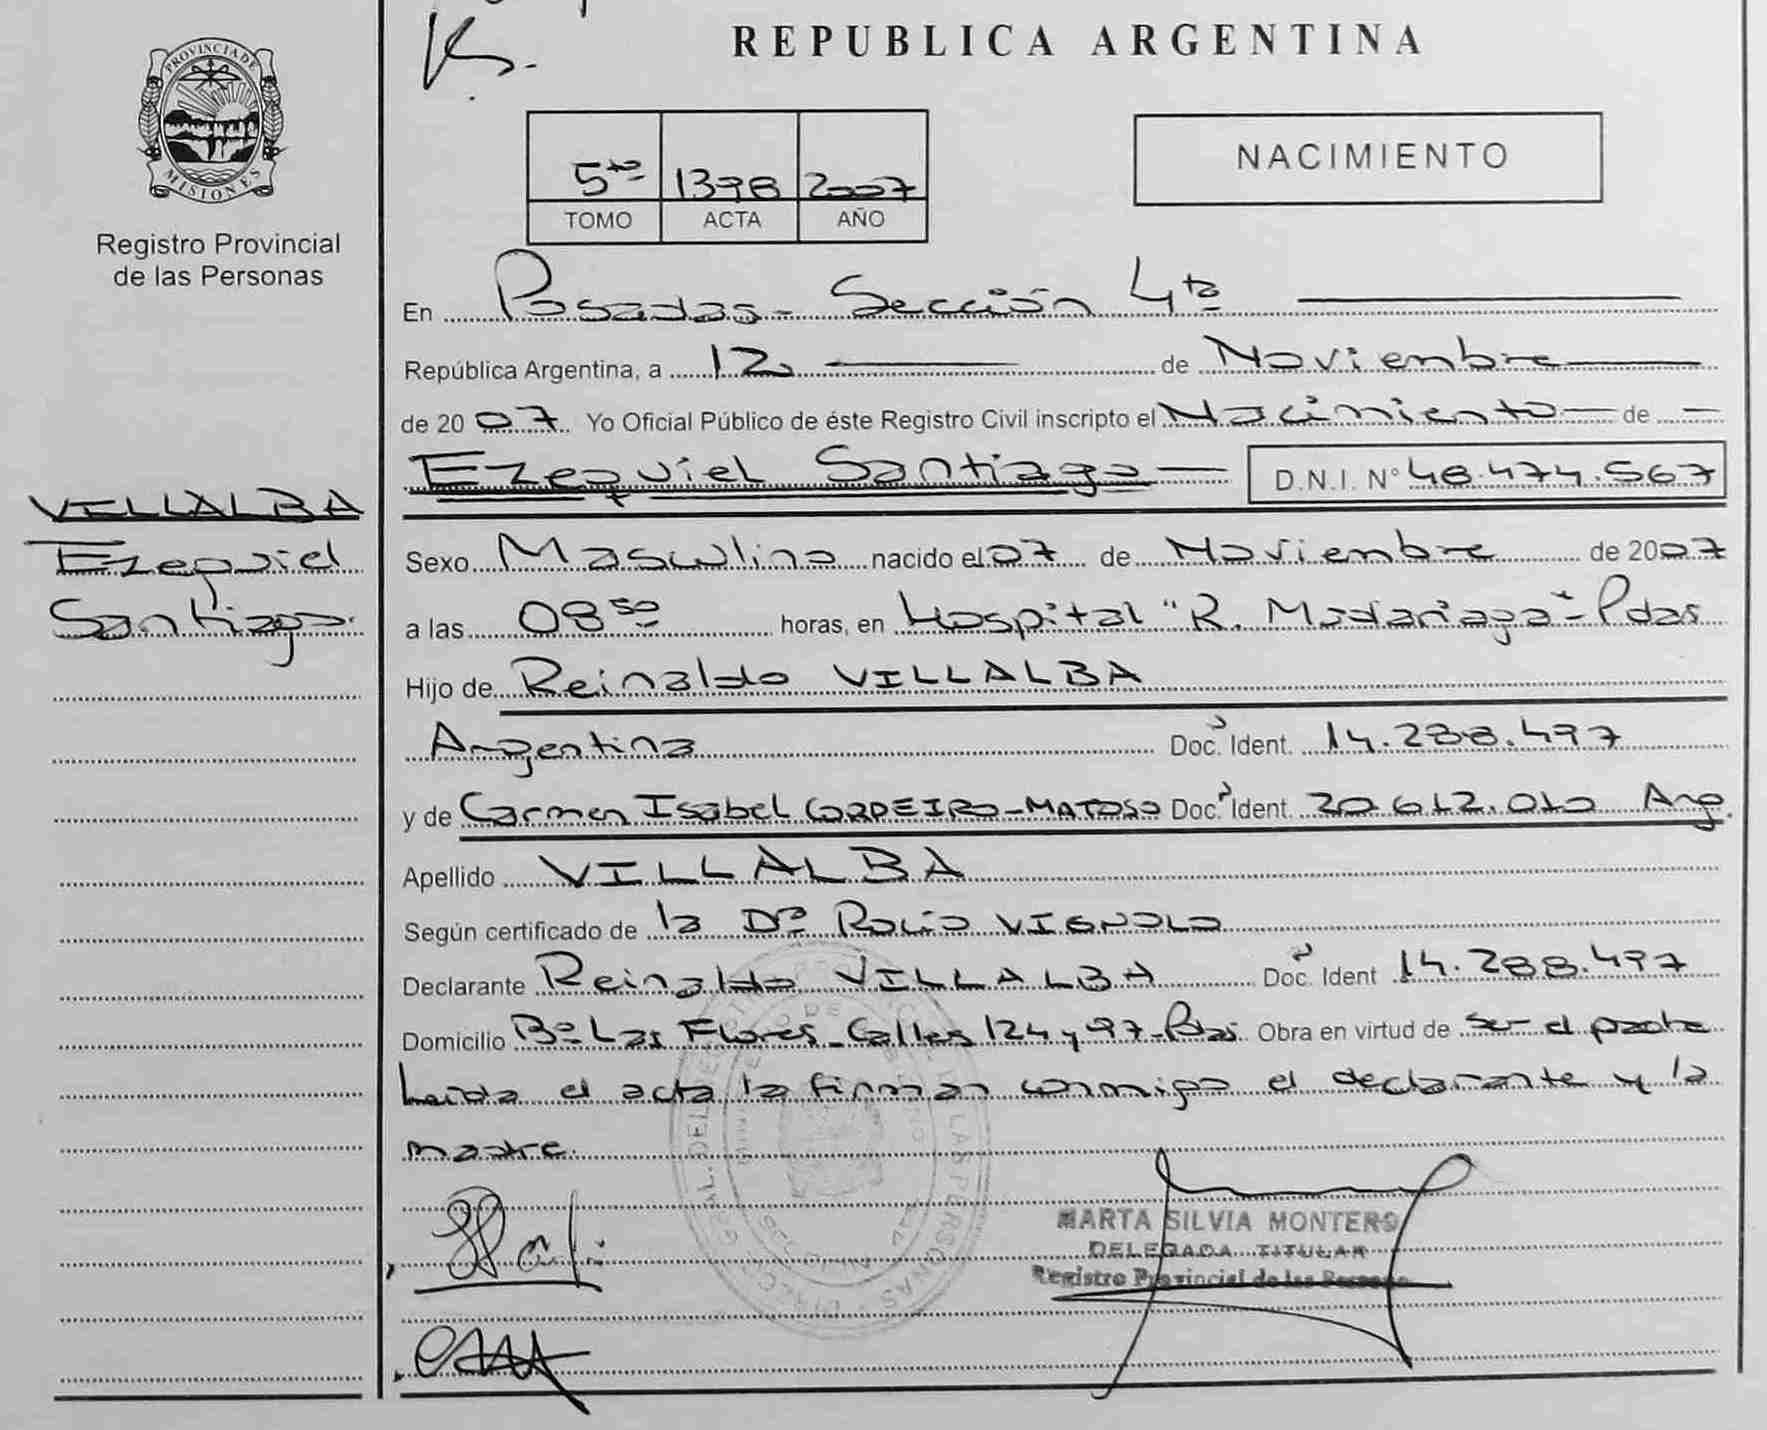 REPUBLICA ARGENTINA
PROVINCIA DE
MISIONES
Registro Provincial
de las Personas
5to 1398 2007
TOMO ACTA AÑO
NACIMIENTO
En Posadas - Sección 4ta
República Argentina, a 12 de Noviembre
de 2007 Yo Oficial Público de éste Registro Civil inscripto el Nacimiento de
Ezequiel Santiago D.N.I. Nº 48.474.567
VILLALBA
Ezequiel
Santiago.
Sexo Masculino nacido el 07 de Noviembre de 2007
a las 08 50 horas, en Hospital "R. Madariaga" - Pdas
Hijo de Reinaldo VILLALBA
Argentina Doc. Ident. 14.288.497
y de Carmen Isabel CORDEIRO-MATOSO Doc. Ident. 20.612.010 Arg.
Apellido VILLALBA
Según certificado de la Dra Rocío VIGNOLO
Declarante Reinaldo VILLALBA Doc. Ident 14.288.497
Domicilio Bº Las Flores - Calles 124 y 97 - Pdas. Obra en virtud de ser el padre
Leída el acta la firman conmigo el declarante y la
madre.
MARTA SILVIA MONTERO
DELEGADA TITULAR
Registro Provincial de las Personas